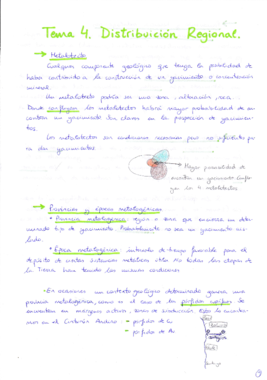 Tema 4. Distribuición Regional.
→ Metalotecto
Cualquier componente geológico que tenga la posibilidad de
haber contribuido a la construcción de un yacimiento o concentración
mineral.
Un metalotecto podría ser una zona, alteración, seca.
Donde confluyan los metalotectos habrá mayor probabilidad de en-
contrar un yacimiento. Son claves en la prospección de yacimien-
tos.
Los metalotectos son condiciones necesarias pero no suficientes pa-
ra dar yacimientos.
Mayor probabilidad de
encontrar un yacimiento. Conflu-
yen los 4 metalotectos
→ Provincias y épocas metalogénicas
• Provincia metalogénica: región o zona que encierra un deter-
minado tipo de yacimiento. Probablemente no sea un yacimiento ais-
lado.
• Época metalogénica: intervalo de tiempo favorable para el
depósito de ciertas sustancias metálicas. No todas las etapas de
la Tierra han tenido las mismas condiciones
- En ocasiones un contexto geológico determinado genera una
provincia metalogénica, como es el caso de los pórfidos cupríferos. Se
encuentran en márgenes activos, zonas de subducción. Esto lo encontra-
mos en el Cinturón Andino
- pórfidos de C
- pórfidos de Au